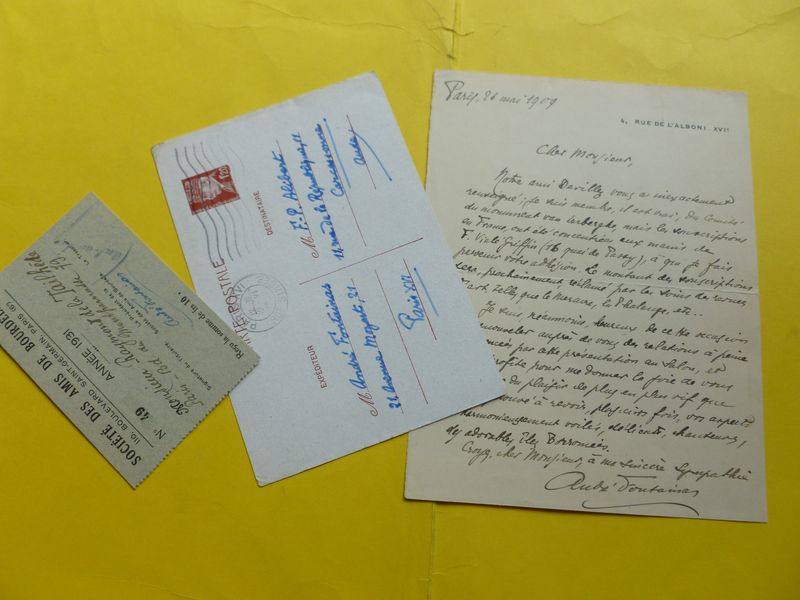 Paris, 26 mai 1909
4, RUE DE L'ALBONI. XVIᵉ
Cher Monsieur,
Notre ami Davilly vous a inexactement
renseigné; je suis membre, il est vrai, du Comité
du monument van Lerberghe, mais les souscriptions
en France ont été concentrées aux mains de
F. Vielé-Griffin (16 quai de Passy), à qui je fais
parvenir votre adhésion. Le montant des souscriptions
sera prochainement réclamé par les soins de revues
telles que le Mercure, la Phalange, etc.
Je suis néanmoins, heureux de ce que vous
renouveler auprès de vous des relations à peine
par cette présentation au Salon, et
profite pour me donner la joie de vous
du plaisir de plus en plus vif que
à revoir, plusieurs fois, vos aspects
harmonieusement voilés, délicats, chanteurs,
des adorables Iles Borromées.
Croyez, cher Monsieur, à ma sincère sympathie
André Fontainas
POSTALE
DESTINATAIRE
M F.-P. Alibert
rue de la République,
Carcassonne
Aude
EXPÉDITEUR
M André Fontainas
21, avenue Mozart, 21
Paris XVI
SOCIÉTÉ DES AMIS DE BOURDELLE
110, BOULEVARD SAINT-GERMAIN, PARIS (6ᵉ)
ANNÉE 1931
N° 49
Monsieur Raymond de la Tailhède
Paris
Reçu la somme de fr. 10.
Le Trésorier